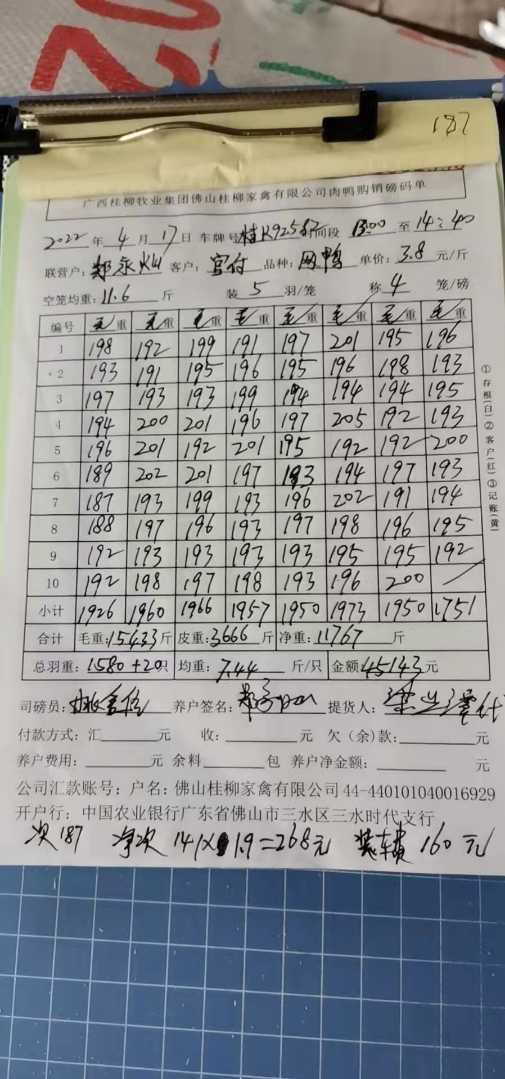 187
广西桂柳牧业集团佛山桂柳家禽有限公司肉鸭购销磅码单
2022 年 4 月 17 日 车牌号 桂K92587 时间段 13:00 至 14:40
联营户: 客户: 品种: 单价: 3.8 元/斤
空笼均重: 11.6 斤 装 5 羽/笼 称 4 笼/磅
编号 毛重 毛重 毛重 毛重 毛重 毛重 毛重 毛重
1 198 192 199 191 197 201 195 196
2 193 191 195 196 195 196 198 193
3 197 193 193 199 194 194 194 195
4 194 200 201 196 197 205 192 193
5 196 201 192 201 195 192 192 200
6 189 202 201 197 193 194 197 193
7 187 193 199 193 196 202 191 194
8 188 197 196 193 197 198 196 195
9 192 193 193 193 193 195 195 192
10 192 198 197 198 193 196 200
小计 1926 1960 1966 1957 1950 1973 1950 1751
合计 毛重: 15433 斤 皮重: 3666 斤 净重: 11767 斤
总羽重: 1580+2只 均重: 7.44 斤/只 金额 45143 元
①存根(白)②客户(红)③记账(黄)
司磅员: 养户签名: 提货人:
付款方式: 汇 元 收: 元 欠(余)款: 元
养户费用: 元 余料 包 养户净金额: 元
公司汇款账号: 户名: 佛山桂柳家禽有限公司 44-440101040016929
开户行: 中国农业银行广东省佛山市三水区三水时代支行
次187 净次 141×1.9=268元 装车费 160元